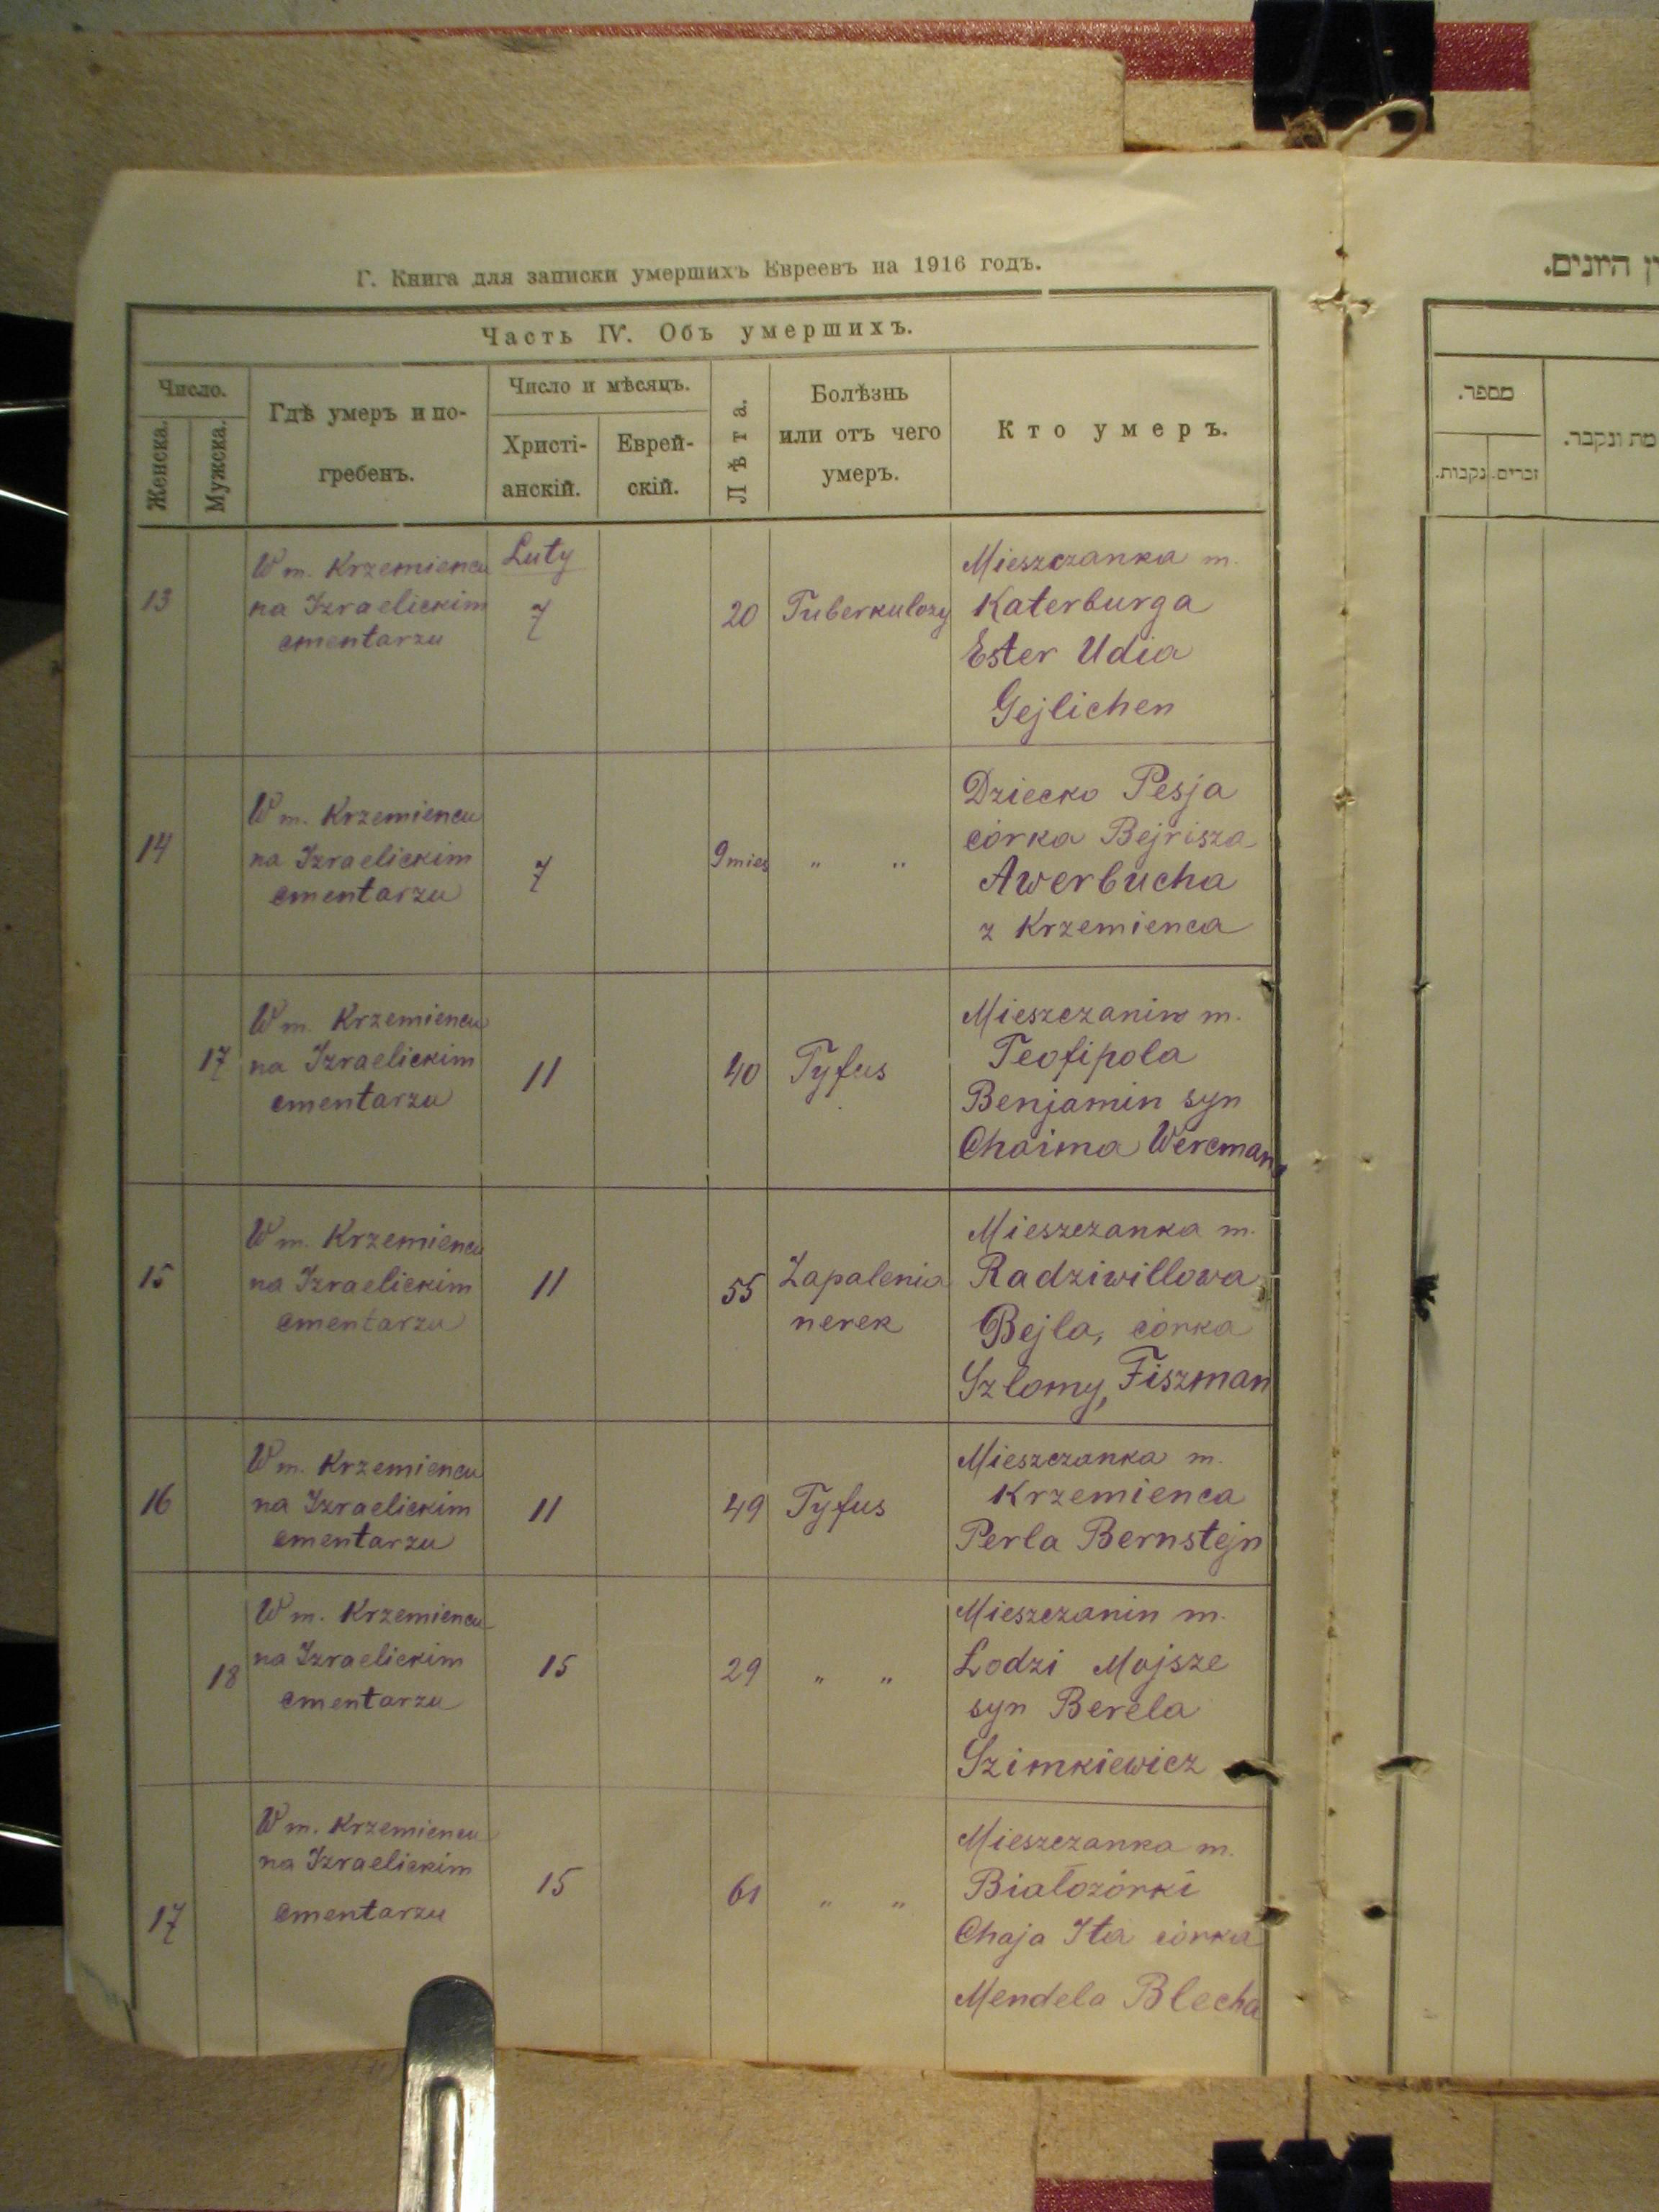 Г. Книга для записки умершихъ Евреевъ на 1916 годъ.
Часть IV. Объ умершихъ.
Число.
Женска.
Мужска.
Гдѣ умеръ и по-
гребенъ.
Число и мѣсяцъ.
Христі-
анскій.
Еврей-
скій.
Лѣта.
Болѣзнь
или отъ чего
умеръ.
Кто умеръ.
13
W m. Krzemiencu
na Izraelickim
cmentarzu
Luty
7
20
Tuberkulozy
Mieszczanka m.
Katerburga
Ester Udia
Gejlichen
14
W m. Krzemiencu
na Izraelickim
cmentarzu
7
9 mies
" "
Dziecko Pesja
córka Bejrisza
Awerbucha
z Krzemienca
17
W m. Krzemiencu
na Izraelickim
cmentarzu
11
40
Tyfus
Mieszczanin m.
Teofipola
Benjamin syn
Chaima Wercmana
15
W m. Krzemiencu
na Izraelickim
cmentarzu
11
55
Zapalenia
nerek
Mieszczanka m.
Radziwillowa
Bejla, córka
Szlomy, Fiszman
16
W m. Krzemiencu
na Izraelickim
cmentarzu
11
49
Tyfus
Mieszczanka m.
Krzemienca
Perla Bernstejn
18
W m. Krzemiencu
na Izraelickim
cmentarzu
15
29
" "
Mieszczanin m.
Łodzi Mojsze
syn Berela
Szimkiewicz
17
W m. Krzemiencu
na Izraelickim
cmentarzu
15
61
" "
Mieszczanka m.
Białozórki
Chaja Ita córka
Mendela Blecha
ן היונים.
מספר.
זכרים.
נקבות.
מת ונקבר.